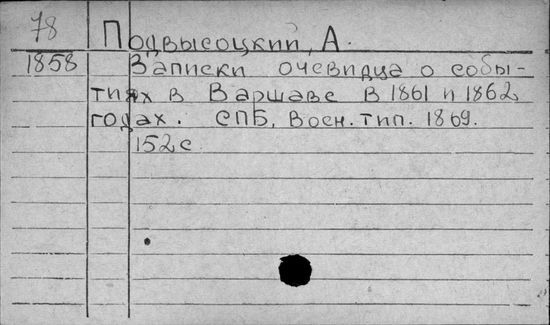 78 Подвысоцкий, А.
1858 Записки очевидца о собы-
тиях в Варшаве в 1861 и 1862
годах. СПБ, Воен. тип. 1869.
152 с.